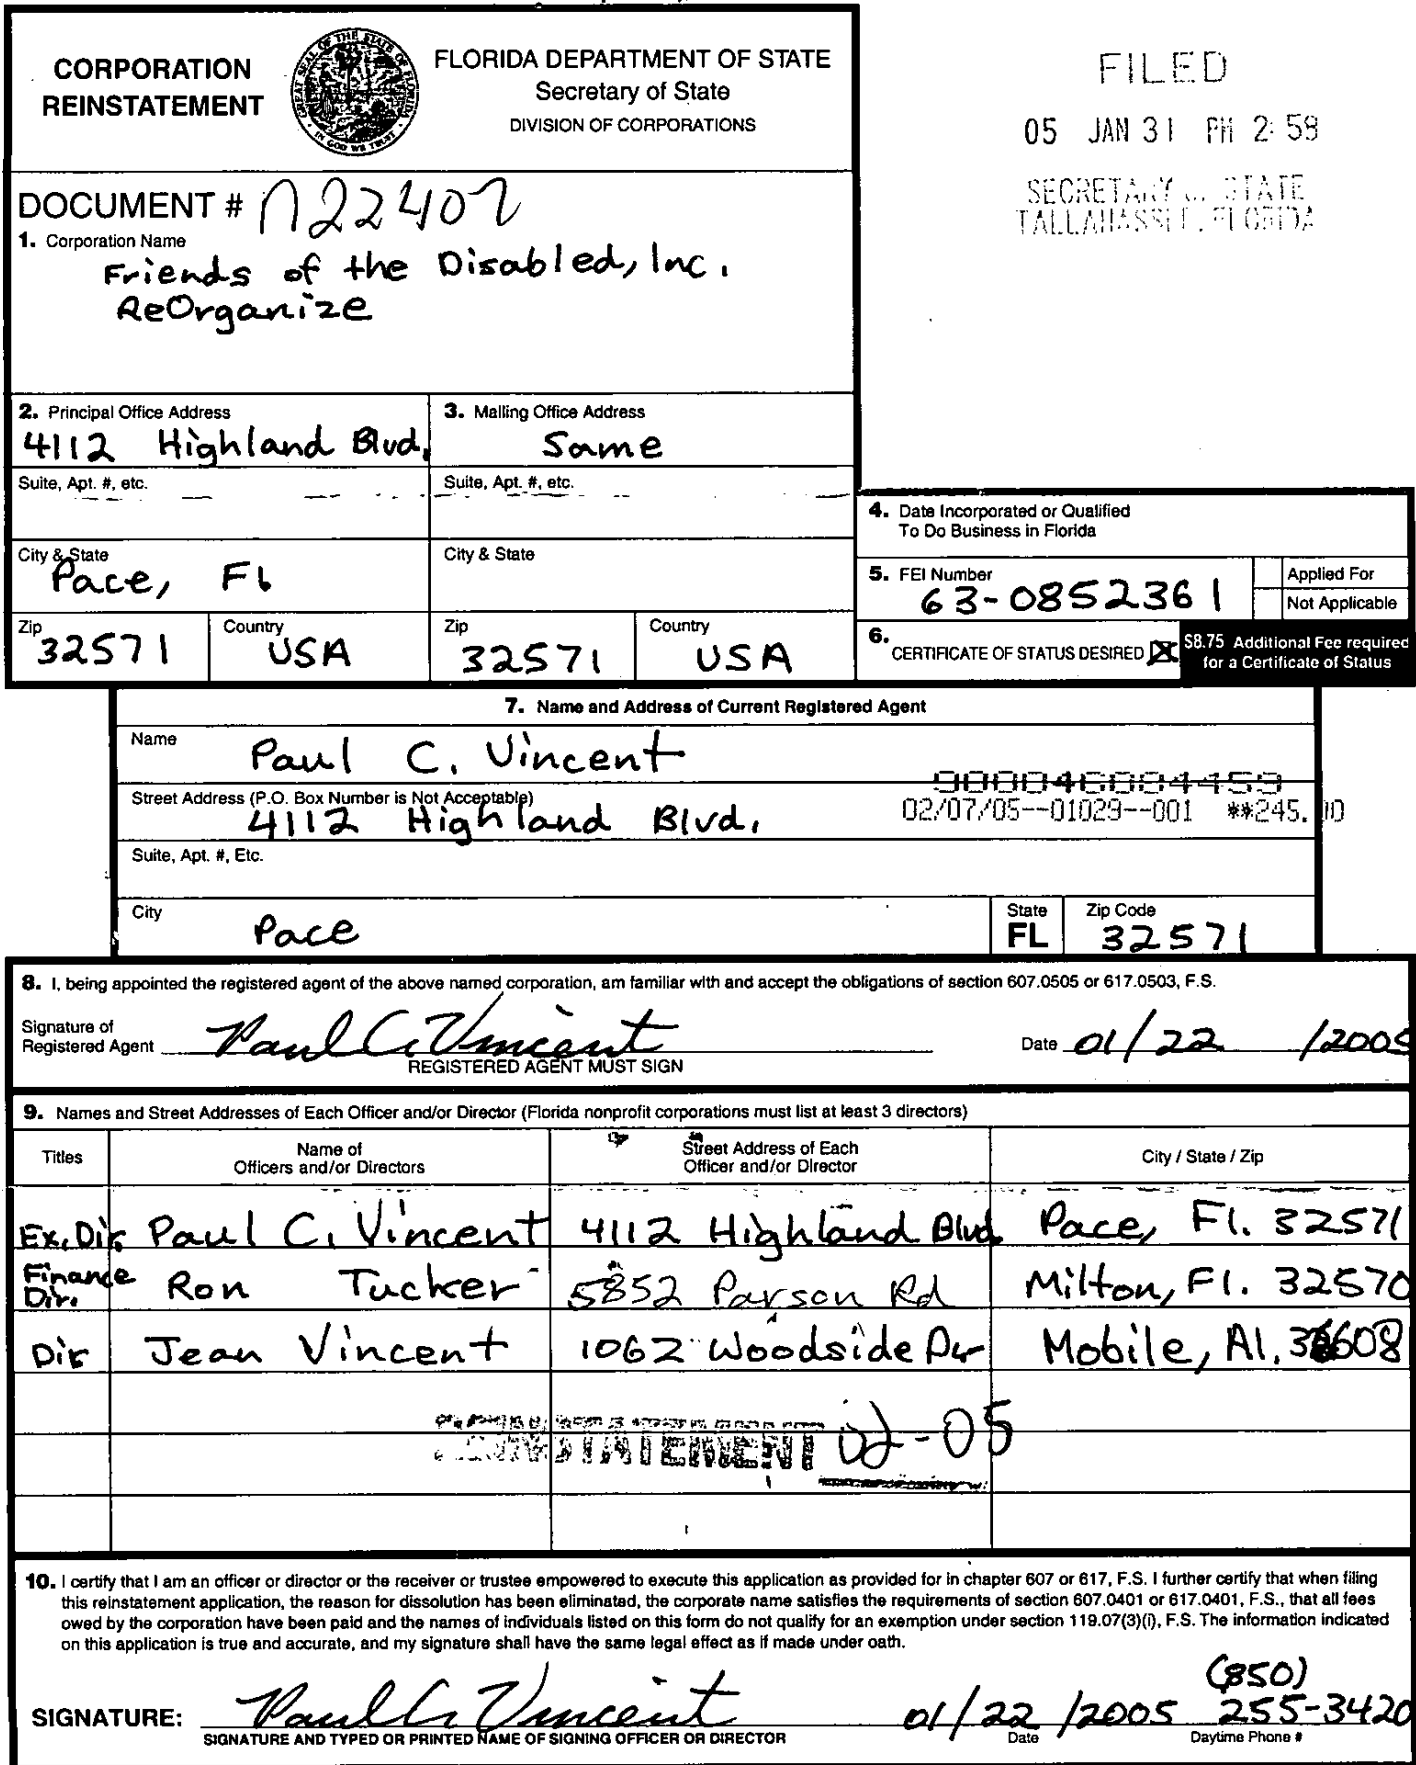 CORPORATION
REINSTATEMENT
FLORIDA DEPARTMENT OF STATE
Secretary of State
DIVISION OF CORPORATIONS
FILED
05 JAN 31 PM 2:59
SECRETARY STATE
TALLAHASSEE, FLORIDA
DOCUMENT # N22402
1. Corporation Name
Friends of the Disabled, Inc.
ReOrganize
2. Principal Office Address
4112 Highland Blvd.
3. Mailing Office Address
Same
Suite, Apt. #, etc.
Suite, Apt. #, etc.
City & State
Pace, FL
City & State
Zip
32571
Country
USA
Zip
32571
Country
USA
4. Date Incorporated or Qualified
To Do Business in Florida
5. FEI Number
63-0852361
Applied For
Not Applicable
6. CERTIFICATE OF STATUS DESIRED X
$8.75 Additional Fee required
for a Certificate of Status
7. Name and Address of Current Registered Agent
Name
Paul C. Vincent
Street Address (P.O. Box Number is Not Acceptable)
4112 Highland Blvd.
02/07/05--01029--001 **245.00
Suite, Apt. #, Etc.
City
Pace
State
FL
Zip Code
32571
8. I, being appointed the registered agent of the above named corporation, am familiar with and accept the obligations of section 607.0505 or 617.0503, F.S.
Signature of
Registered Agent Paul C. Vincent
REGISTERED AGENT MUST SIGN
Date 01/22/2005
9. Names and Street Addresses of Each Officer and/or Director (Florida nonprofit corporations must list at least 3 directors)
Titles
Name of
Officers and/or Directors
Street Address of Each
Officer and/or Director
City / State / Zip
Ex. Dir. Paul C. Vincent 4112 Highland Blvd Pace, Fl. 32571
Finance Dir. Ron Tucker 5852 Parson Rd Milton, Fl. 32570
Dir Jean Vincent 1062 Woodside Dr Mobile, Al. 36608
REINSTATEMENT 02-05
10. I certify that I am an officer or director or the receiver or trustee empowered to execute this application as provided for in chapter 607 or 617, F.S. I further certify that when filing
this reinstatement application, the reason for dissolution has been eliminated, the corporate name satisfies the requirements of section 607.0401 or 617.0401, F.S., that all fees
owed by the corporation have been paid and the names of individuals listed on this form do not qualify for an exemption under section 119.07(3)(i), F.S. The information indicated
on this application is true and accurate, and my signature shall have the same legal effect as if made under oath.
SIGNATURE: Paul C. Vincent
SIGNATURE AND TYPED OR PRINTED NAME OF SIGNING OFFICER OR DIRECTOR
01/22/2005
Date
(850)
255-3420
Daytime Phone #